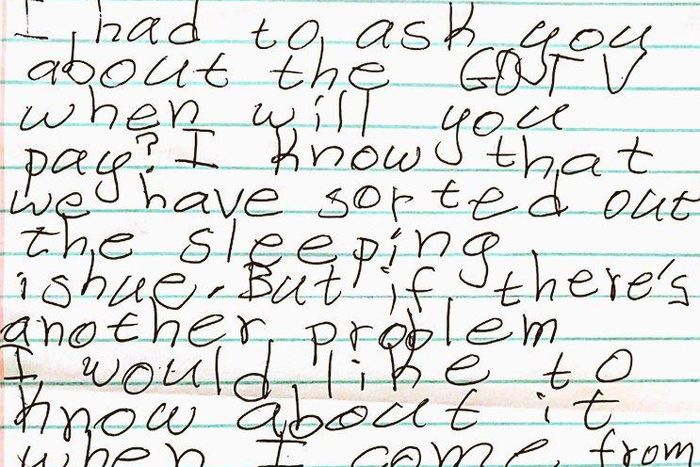 I had to ask you
about the GOTV
when will you
pay? I know that
we have sorted out
the sleeping
ishue. But if there's
another problem
I would like to
know about it
when I come from